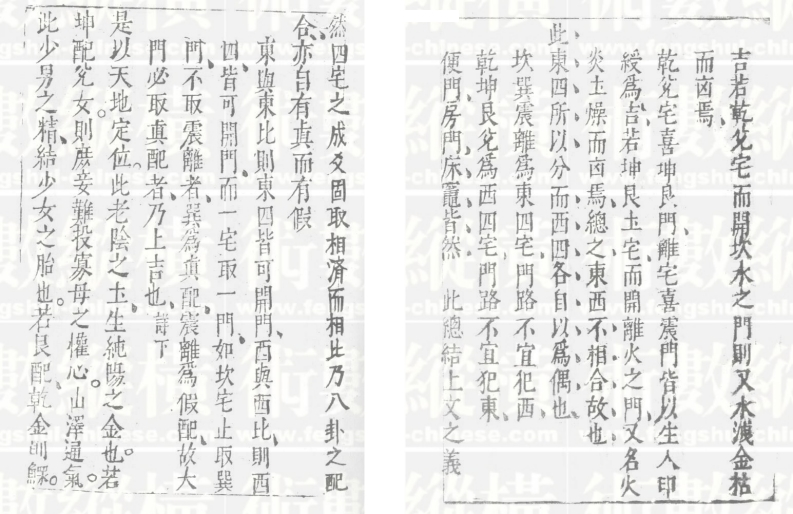 吉若乾兌宅而開坎水之門則又水洩金枯
而凶焉
乾兌宅喜坤艮門離宅喜震門皆以生人印
綬爲吉若坤艮土宅而開離火之門又名火
炎土燥而凶焉總之東西不相合故也
此東四所以分而西四各自以爲偶也
坎巽震離爲東四宅門路不宜犯西
乾坤艮兌爲西四宅門路不宜犯東
便門房門床竈皆然 此總結上文之義
然四宅之成爻固取相濟而相比乃八卦之配
合亦自有真而有假
東與東比則東四皆可開門酉與西比則西
四皆可開門而一宅取一門如坎宅止取巽
門不取震離者巽爲真配震離爲假配故大
門必取真配者乃上吉也 詳下
是以天地定位此老陰之土生純陽之金也若
坤配兌女則庶妾難投寡母之懽心山澤通氣
此少男之精結少女之胎也若艮配乾金則鰥